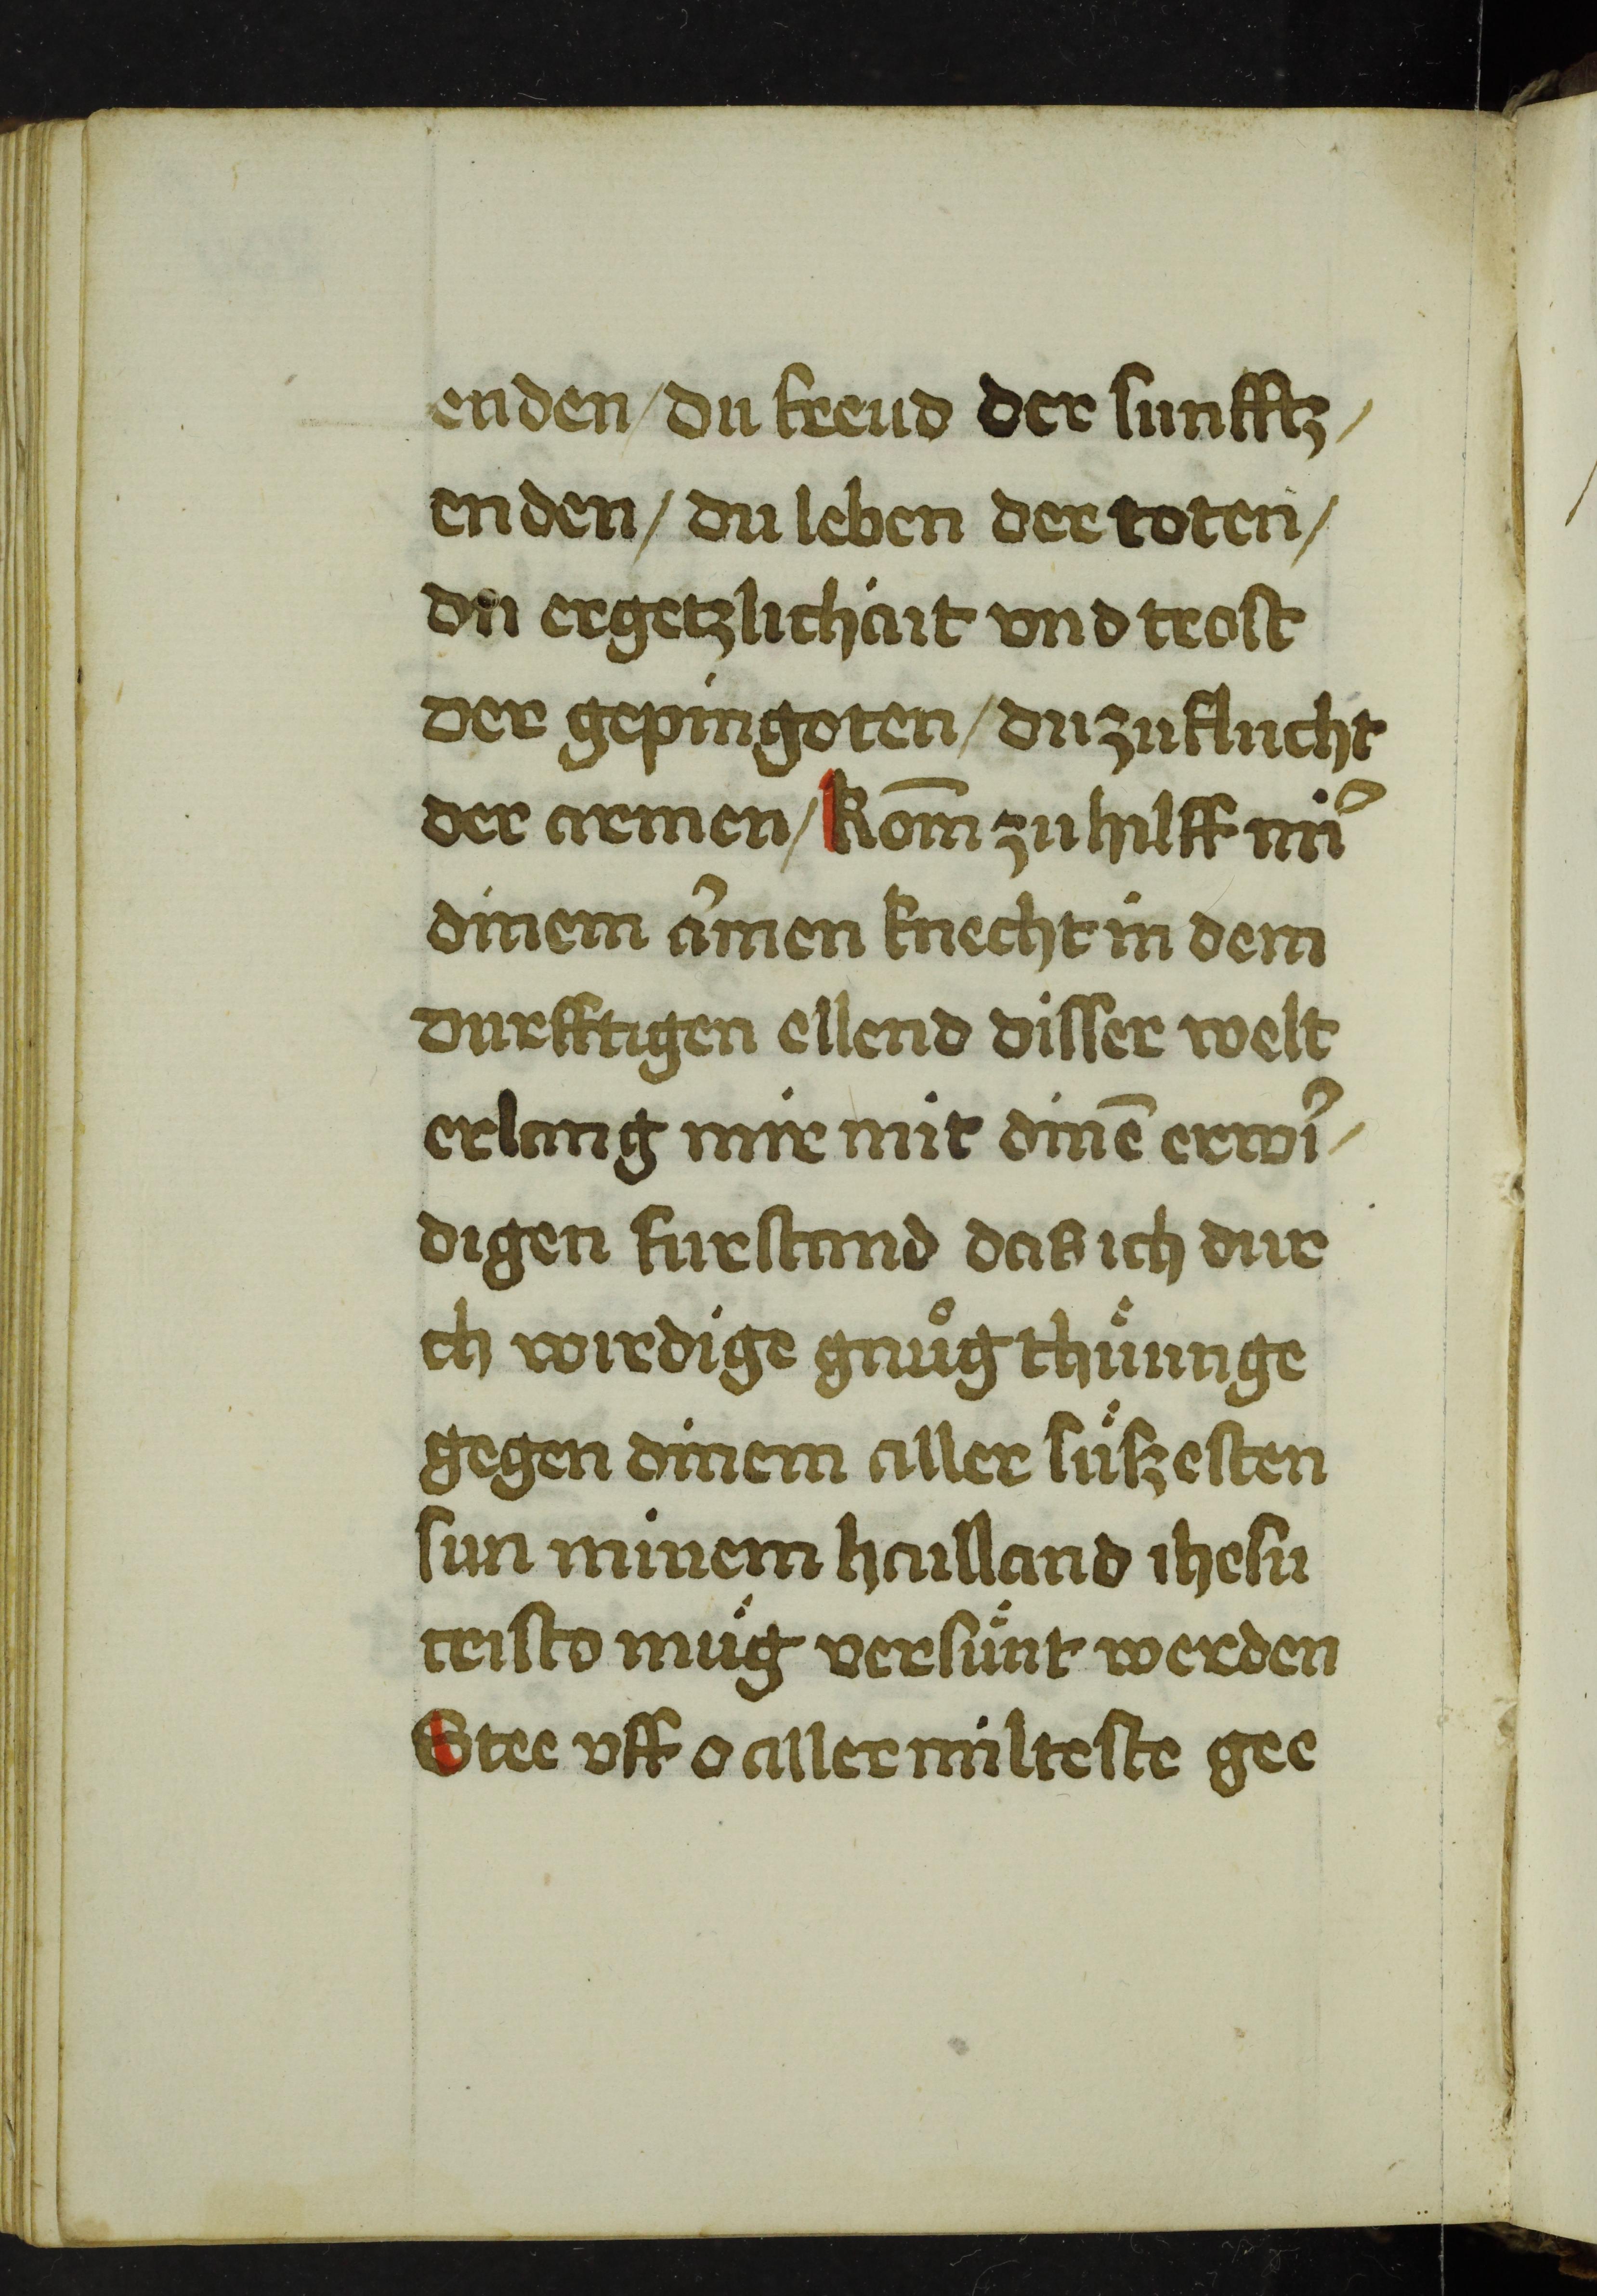 enden / du freud der sunfftz /
enden / du leben der toten /
du ergetzlichait vnd trost
der gepingoten / du zuflucht
der armen / kom̅ zu hilff mi᷑
dinem a᷑men knecht in dem
durfftigen ellend disser welt
erlang mir mit dinē erwi᷑ /
digen furstand das ich dur
ch wirdige gnůg thüunge
gegen dinem aller süszesten
sun minem hailland ihesu
cristo müg versünt werden
Stee vff o aller milteste gee